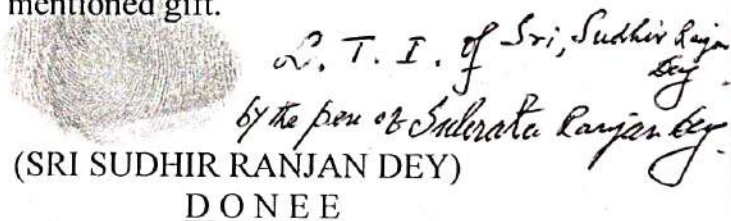 mentioned gift.
L. T. I. of Sri, Sudhir Ranjan
Dey
by the pen of Subrata Ranjan Dey.
(SRI SUDHIR RANJAN DEY)
DONEE